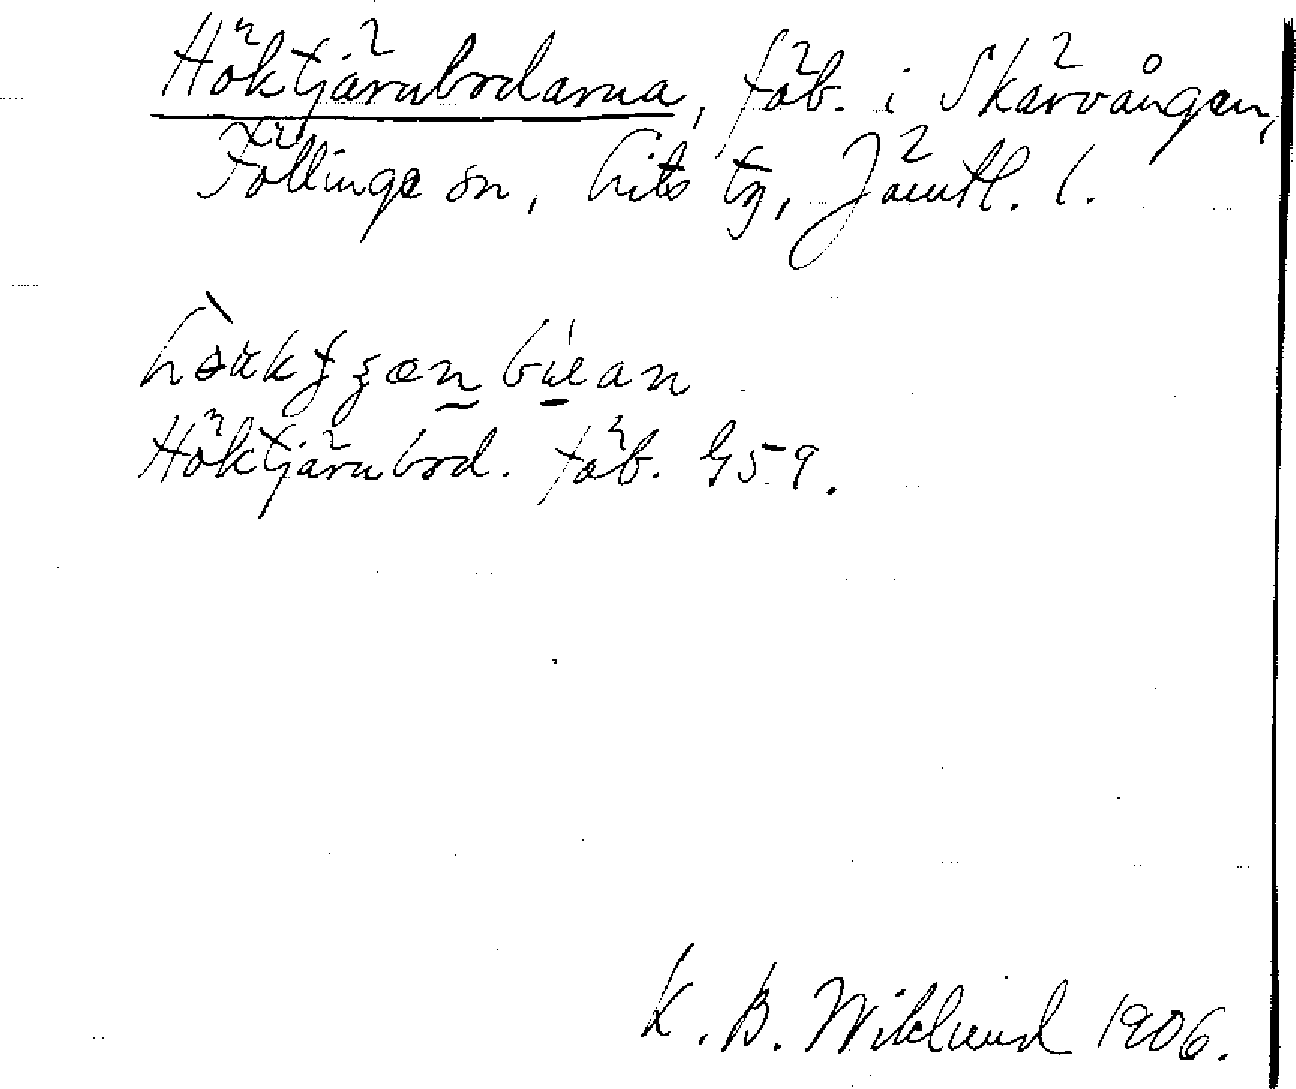 Höktjärnbodarna, fäb. i Skärvången,
Föllinge sn, Lits tg, Jämtl. l.
Höktjärnbod. fäb. 459.
K. B. Wiklund 1906.